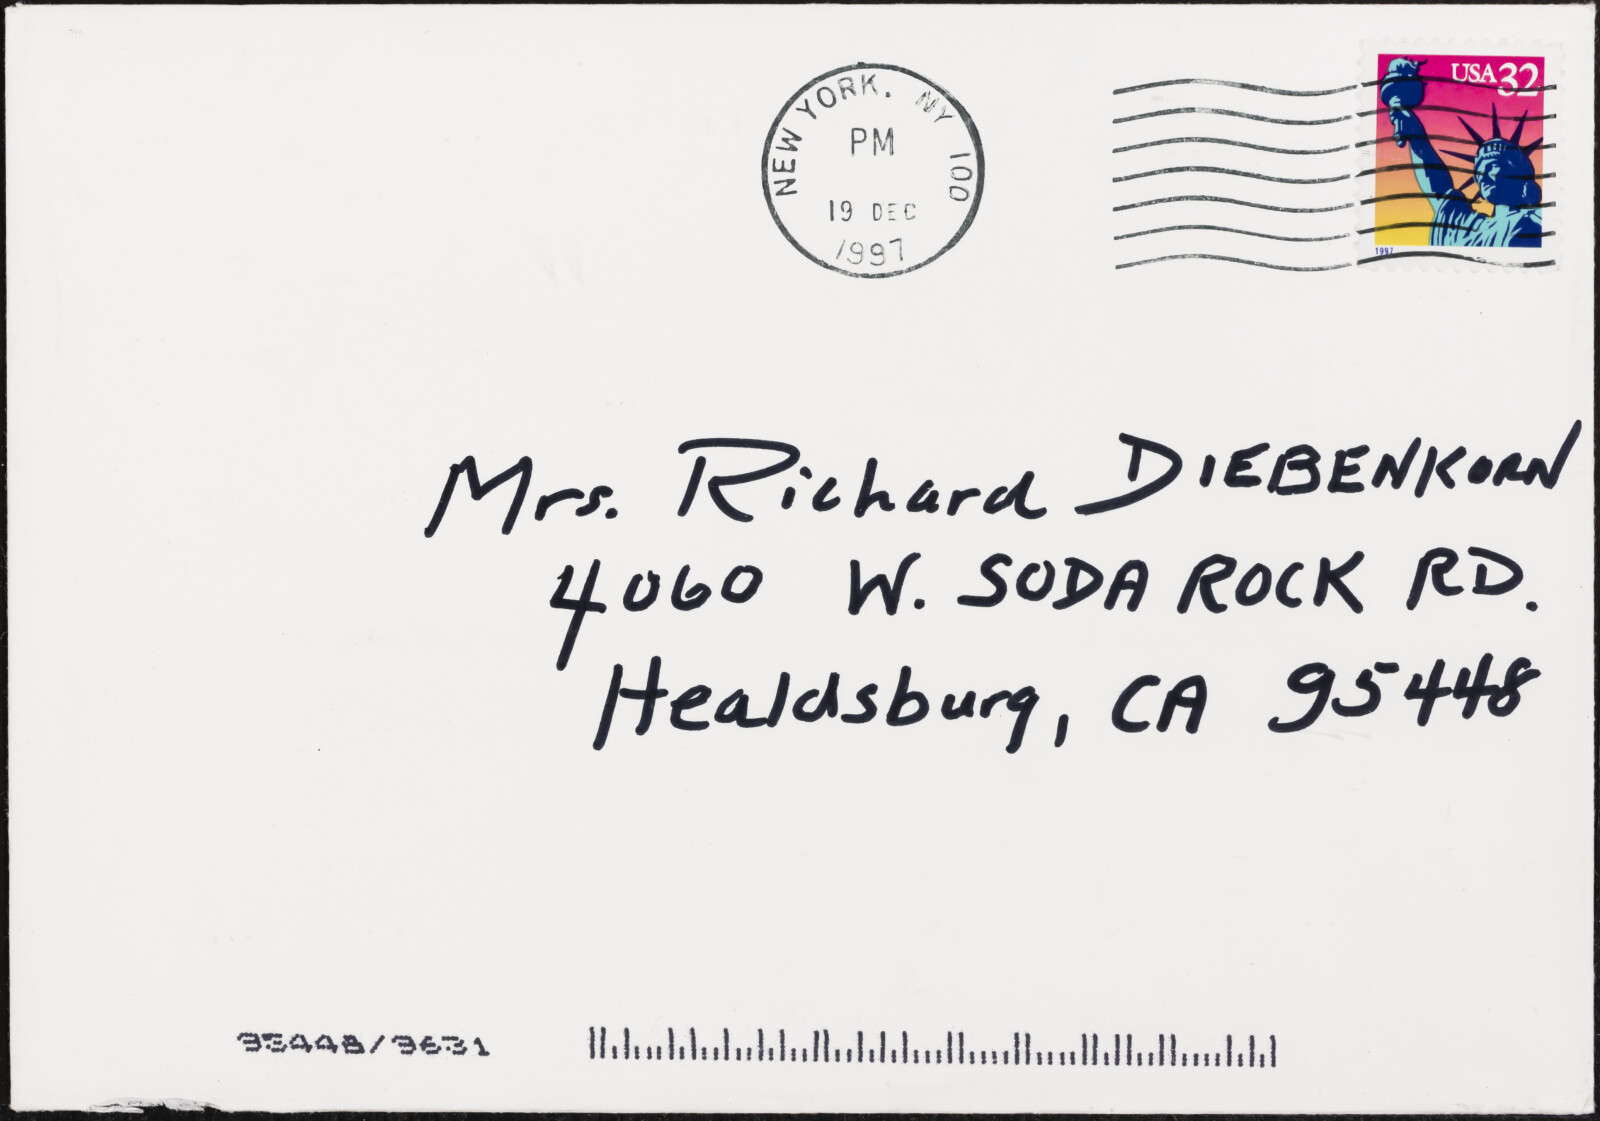 NEW YORK. NY 100
PM
19 DEC
1997
USA 32
1997
Mrs. Richard DIEBENKORN
4060 W. SODA ROCK RD.
Healdsburg, CA 95448
95448/9631